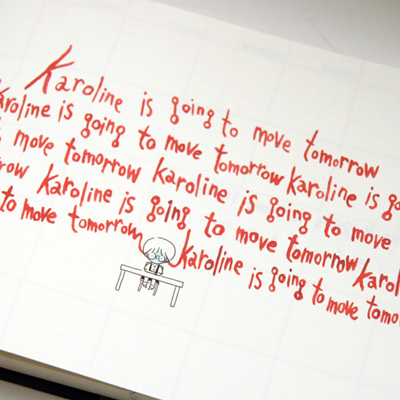 Karoline is going to move tomorrow
Karoline is going to move tomorrow Karoline is
move tomorrow Karoline is going to move
Karoline is going to move tomorrow
to move tomorrow Karoline is going to move